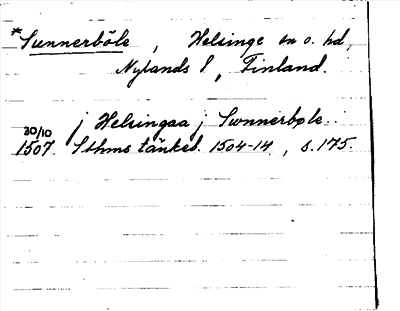 *Sunnerböle, Helsinge sn o. hd,
Nylands l, Finland.
j Helsingaa j Swnnerbøle..
30/10
1507 Sthms tänkeb. 1504-14, s. 175.